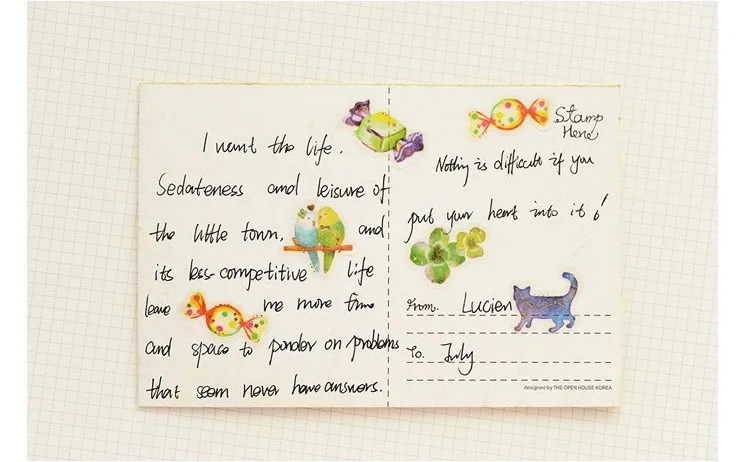 I want the life.
Sedateness and leisure of
the little town, and
its less-competitive life
leave me more time
and space to ponder on problems
that seem never have answers.
Stamp
Here
Nothing is difficult if you
put your heart into it!
From. Lucien
To. July
designed by THE OPEN HOUSE KOREA